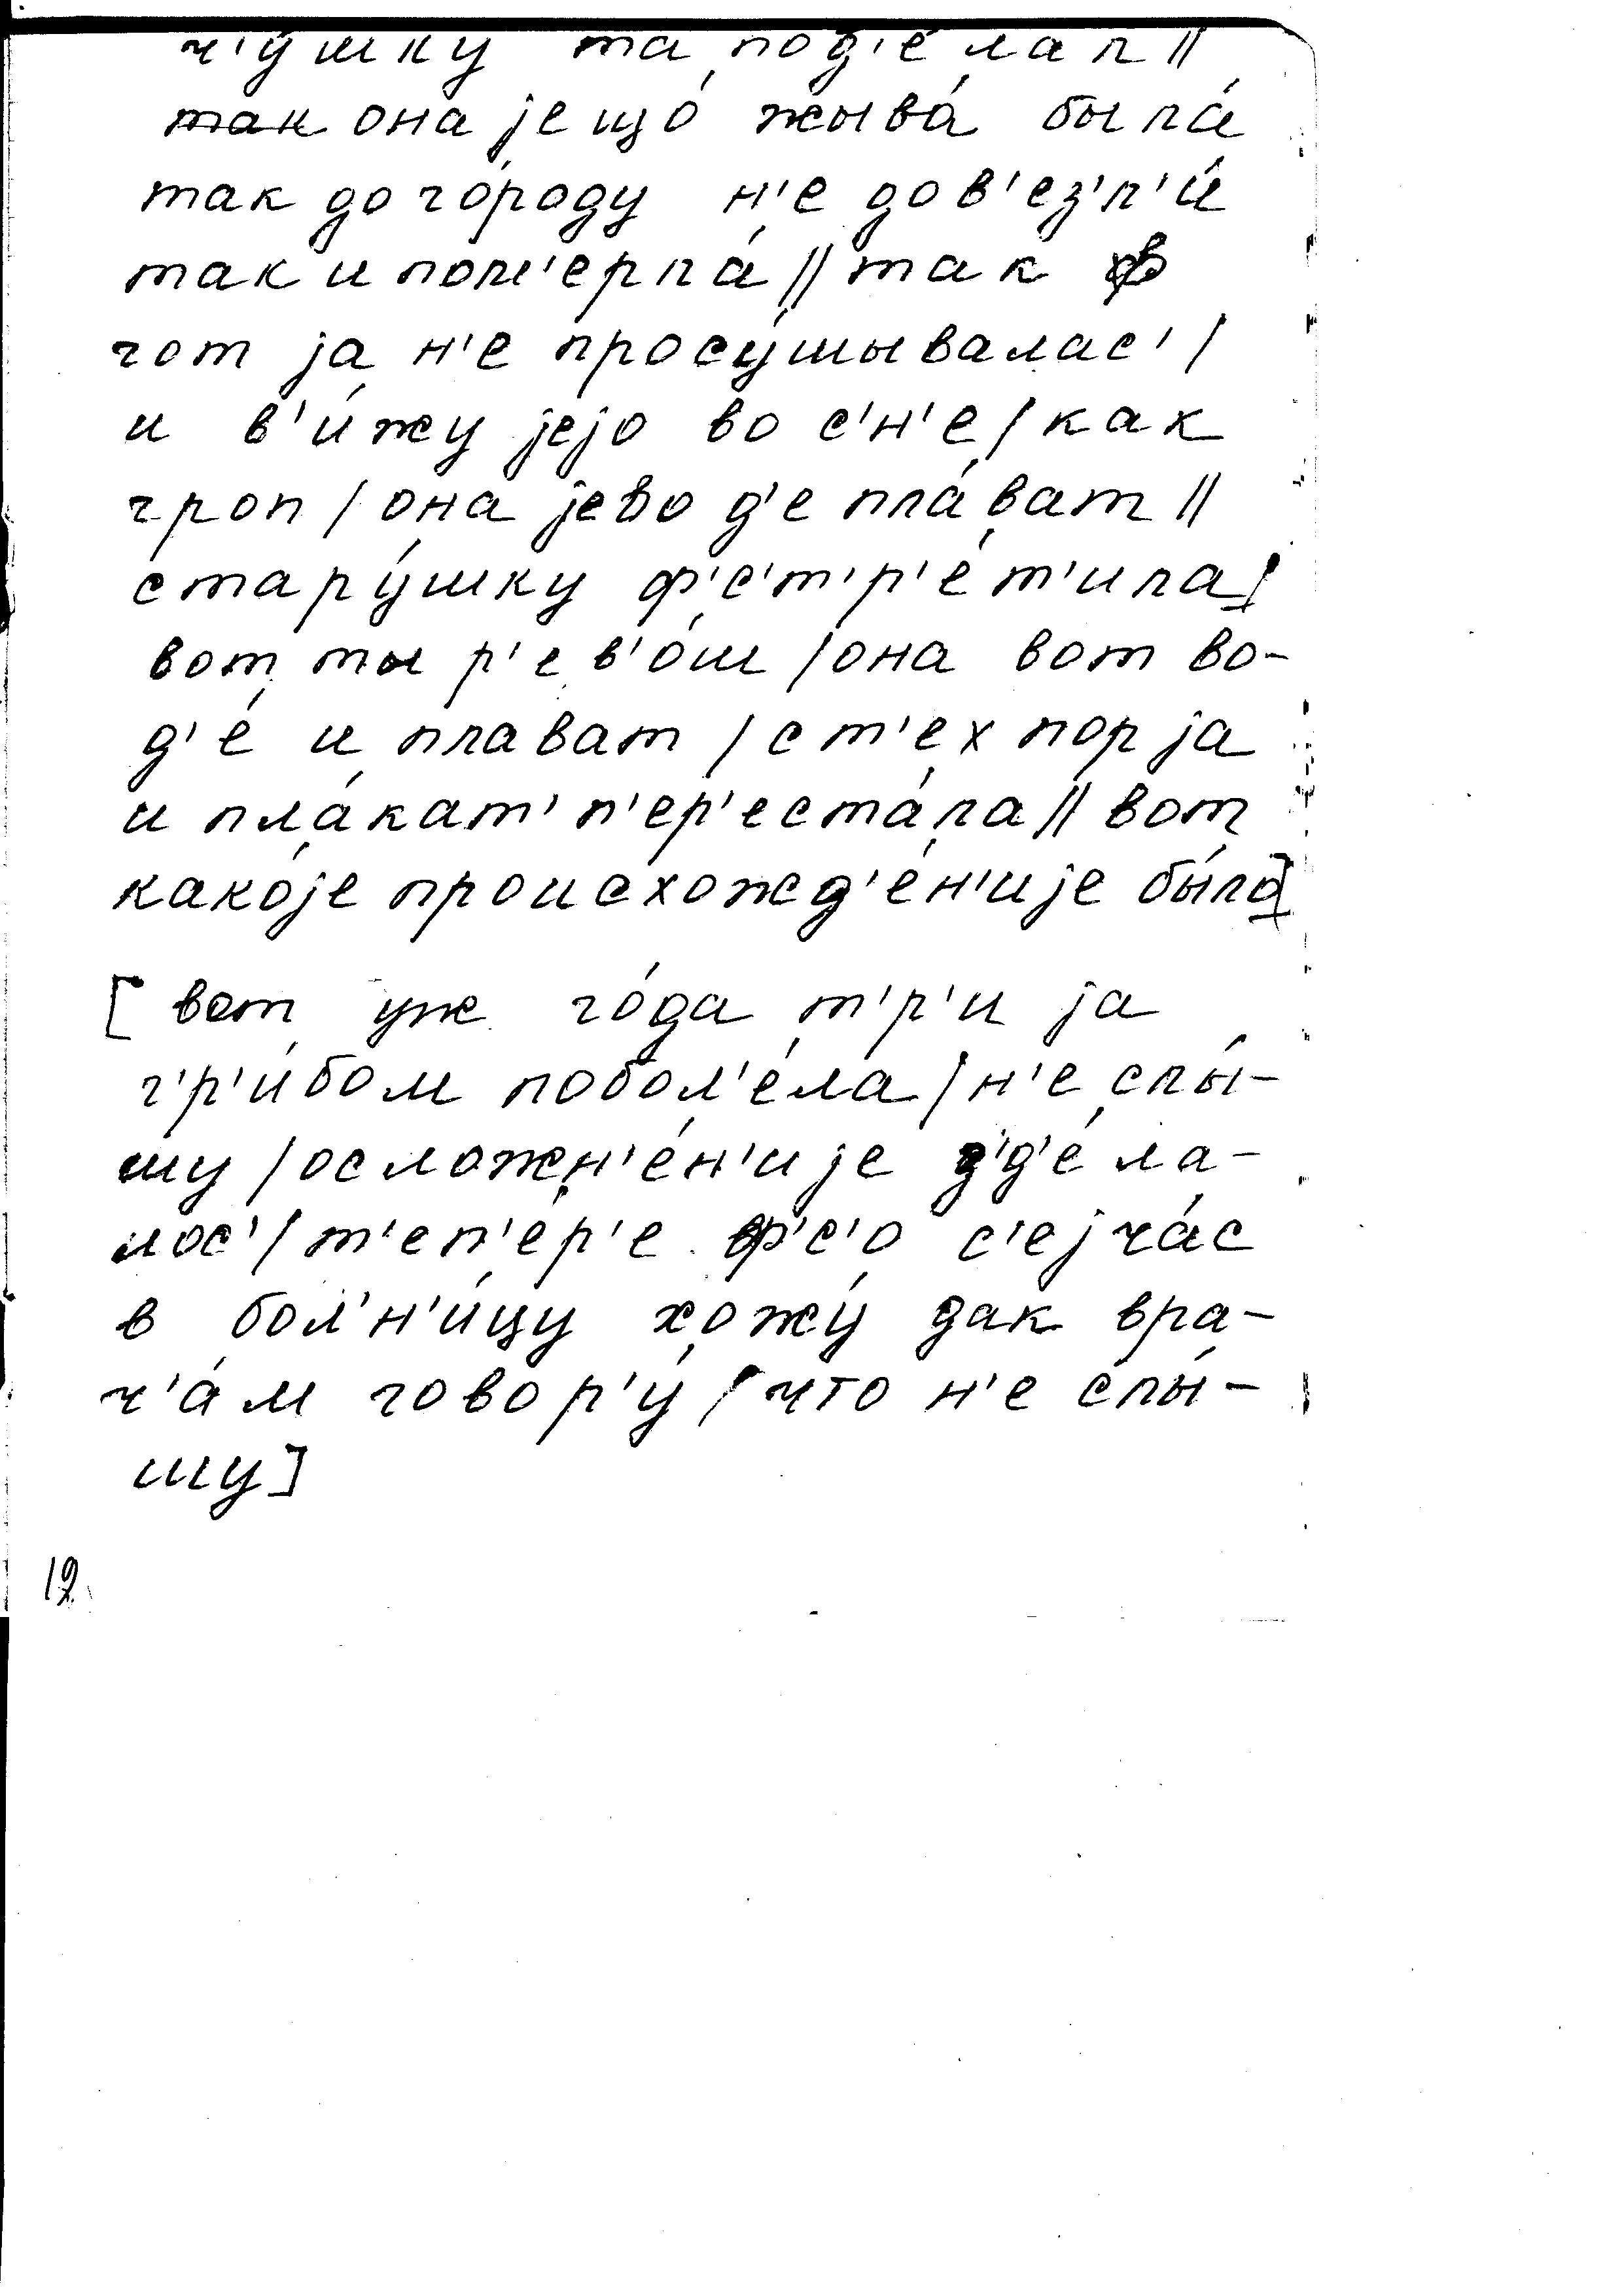 ч'у́шку та под'е́лал ||
~~так~~ она јещо́ жыва́ была́
так до го́роду н'е дов'ез'л'и́
так и пом'ерла́ || так ф
гот ја н'е просу́шывалас' /
и в'и́жу јејо во с'н'е / как
гроп / она јево д'е пла́ват ||
стару́шку ф'с'т'р'е́т'ила /
вот ты р'ев'о́ш / она вот во-
д'е́ и плават / ст'ех пор ја
и пла́кат' п'ер'еста́ла || вот
како́је происхожд'е́н'ије бы́ло]
[ вот уж го́да т'р'и ја
г'р'и́бом побол'е́ла / н'е слы́-
шу / осложн'е́н'ије з'д'е́ла-
лос' / т'еп'е́р'е ф'с'о с'ејча́с
в бол'н'и́цу хожу́ дак вра-
ч'а́м говор'у́ / что н'е слы́-
шу]
12.